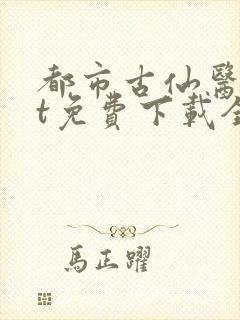 都市古仙醫
t免費下載全
馬正躍